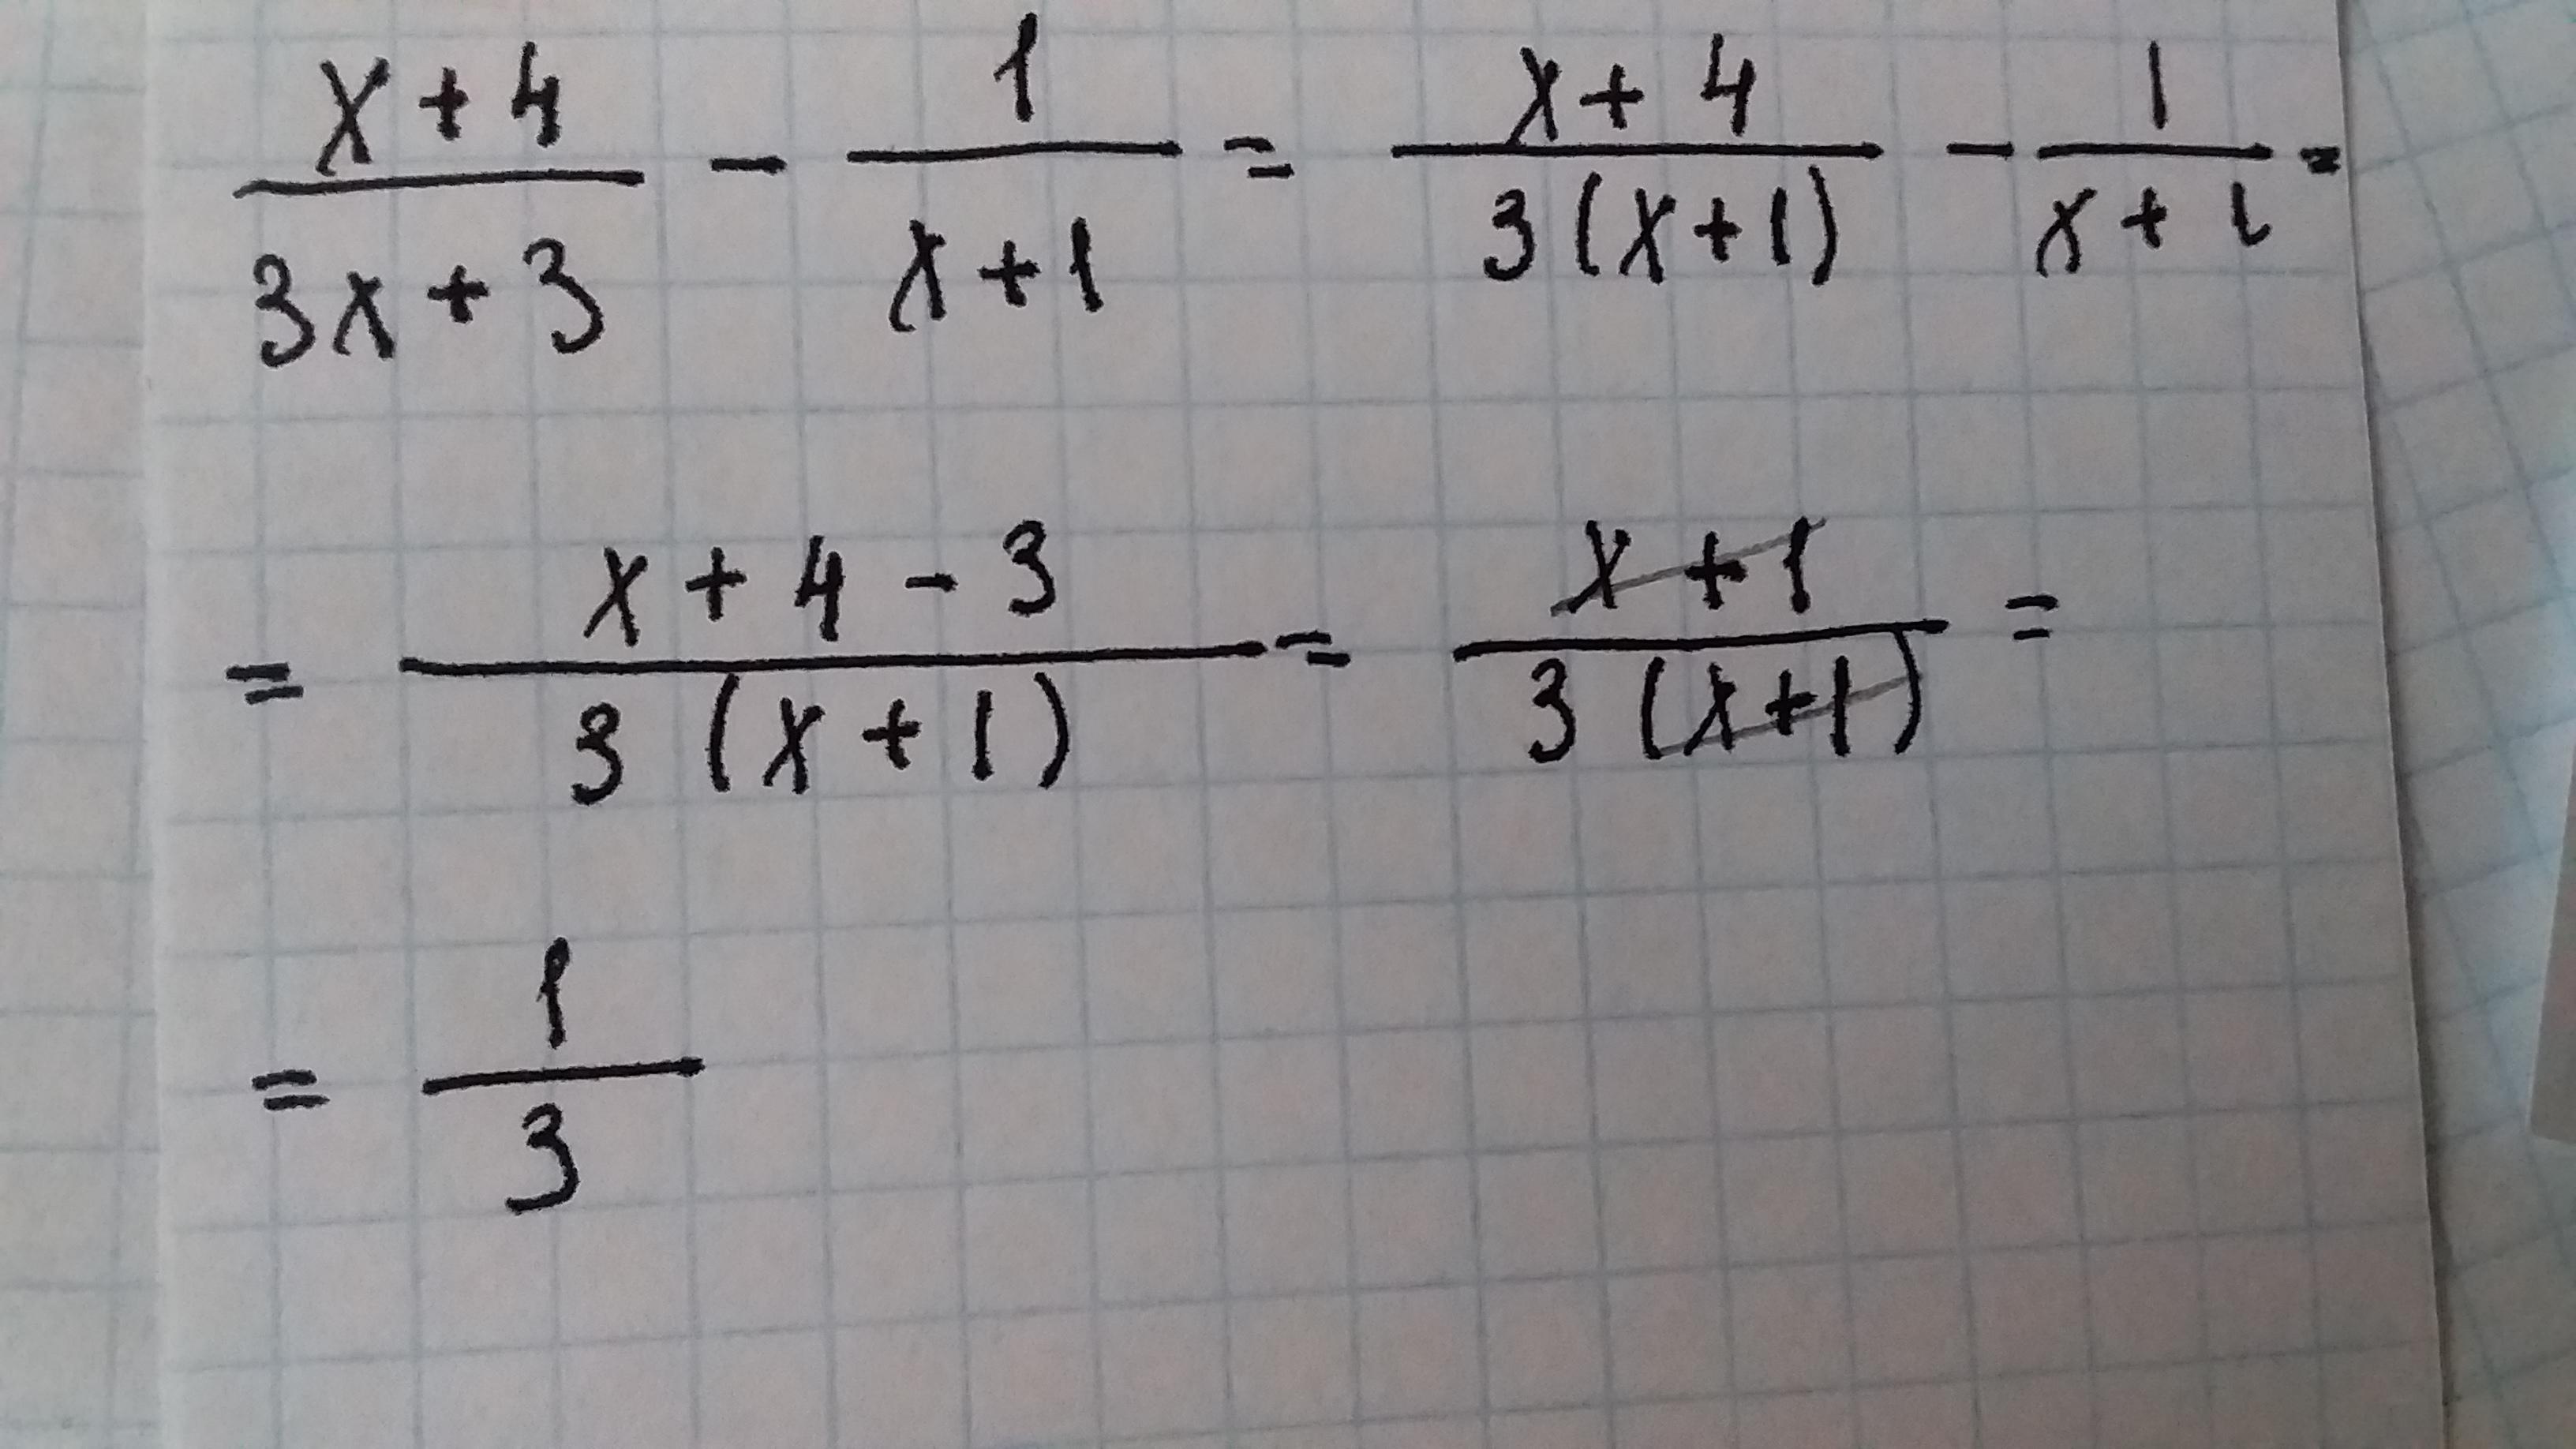 \frac{x+4}{3x+3} - \frac{1}{x+1} = \frac{x+4}{3(x+1)} - \frac{1}{x+1} =
= \frac{x+4-3}{3(x+1)} = \frac{x+1}{3(x+1)} =
= \frac{1}{3}